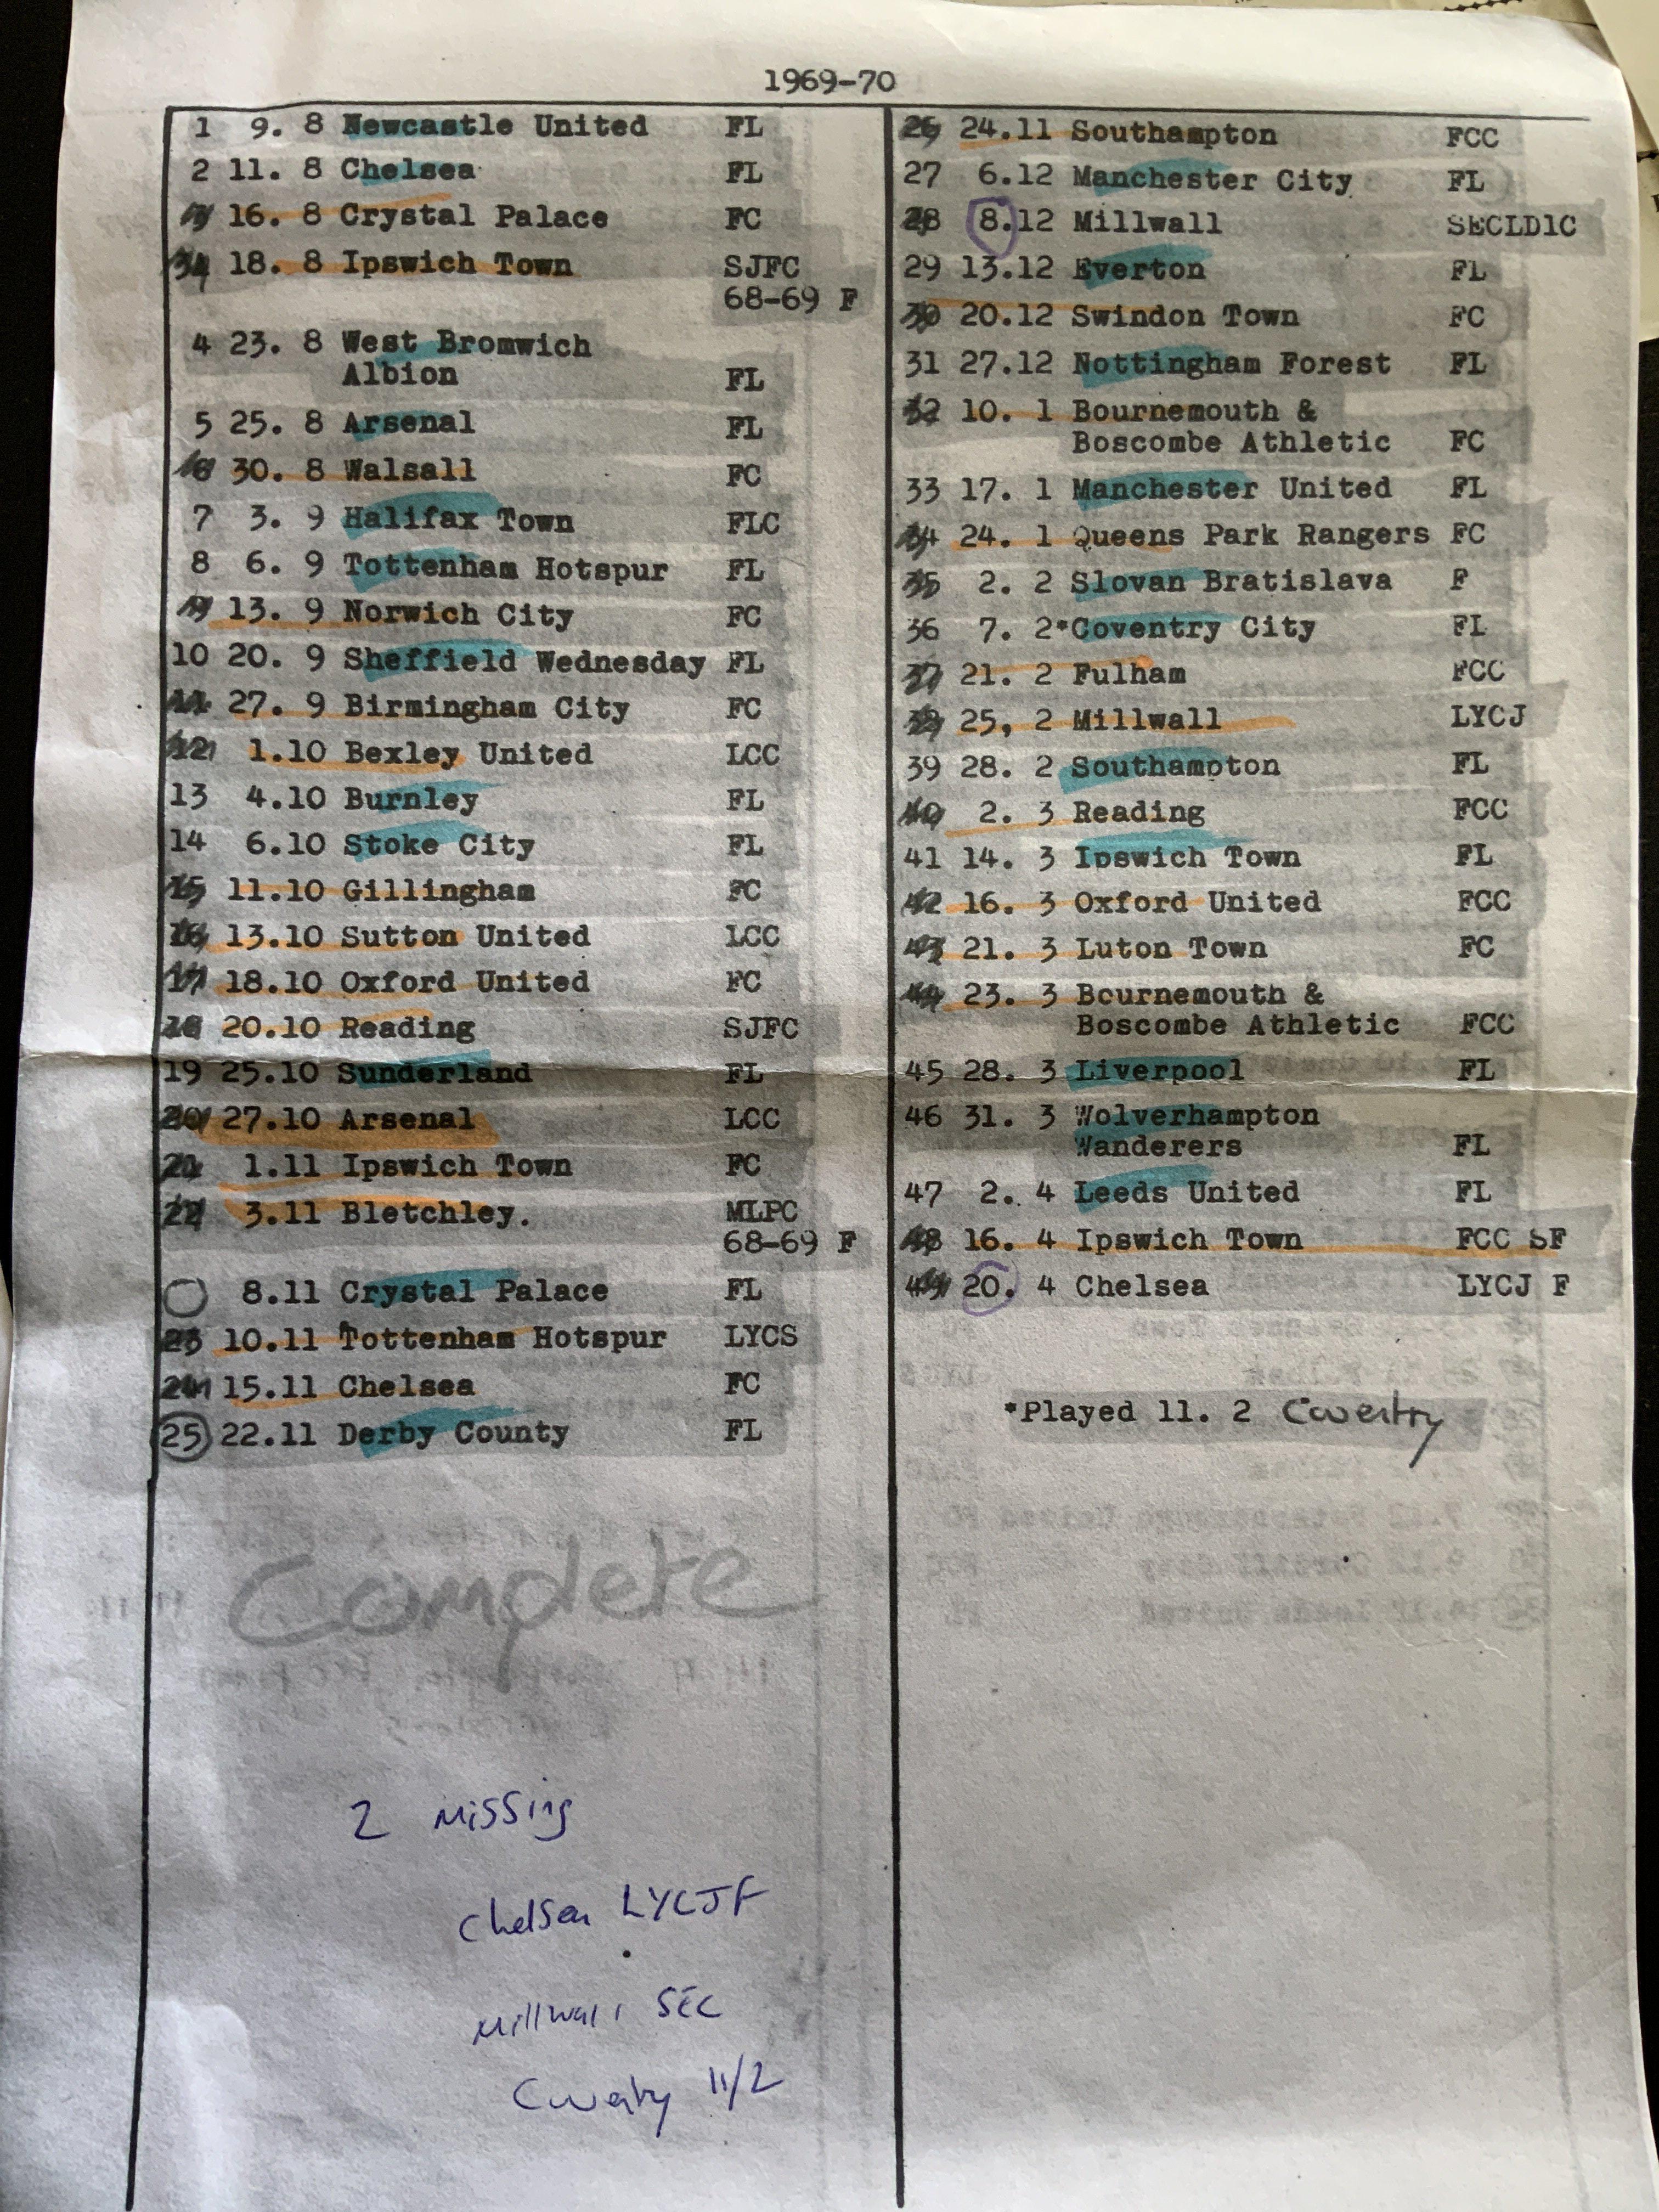 1969-70
1 9. 8 Newcastle United FL
2 11. 8 Chelsea FL
16. 8 Crystal Palace FC
18. 8 Ipswich Town SJFC
68-69 F
4 23. 8 West Bromwich
Albion FL
5 25. 8 Arsenal FL
6 30. 8 Walsall FC
7 3. 9 Halifax Town FLC
8 6. 9 Tottenham Hotspur FL
9 13. 9 Norwich City FC
10 20. 9 Sheffield Wednesday FL
11 27. 9 Birmingham City FC
12 1.10 Bexley United LCC
13 4.10 Burnley FL
14 6.10 Stoke City FL
15 11.10 Gillingham FC
16 13.10 Sutton United LCC
17 18.10 Oxford United FC
18 20.10 Reading SJFC
19 25.10 Sunderland FL
20 27.10 Arsenal LCC
21 1.11 Ipswich Town FC
22 3.11 Bletchley. MLPC
68-69 F
8.11 Crystal Palace FL
23 10.11 Tottenham Hotspur LYCS
24 15.11 Chelsea FC
25 22.11 Derby County FL
26 24.11 Southampton FCC
27 6.12 Manchester City FL
28 8.12 Millwall SECLD1C
29 13.12 Everton FL
30 20.12 Swindon Town FC
31 27.12 Nottingham Forest FL
32 10. 1 Bournemouth &
Boscombe Athletic FC
33 17. 1 Manchester United FL
34 24. 1 Queens Park Rangers FC
35 2. 2 Slovan Bratislava F
36 7. 2*Coventry City FL
37 21. 2 Fulham FCC
38 25, 2 Millwall LYCJ
39 28. 2 Southampton FL
40 2. 3 Reading FCC
41 14. 3 Ipswich Town FL
42 16. 3 Oxford United FCC
43 21. 3 Luton Town FC
44 23. 3 Bournemouth &
Boscombe Athletic FCC
45 28. 3 Liverpool FL
46 31. 3 Wolverhampton
Wanderers FL
47 2. 4 Leeds United FL
48 16. 4 Ipswich Town FCC SF
49 20. 4 Chelsea LYCJ F
*Played 11. 2 Coventry
Complete
2 Missing
Chelsea LYCJF
Millwall SEC
Coventry 11/2